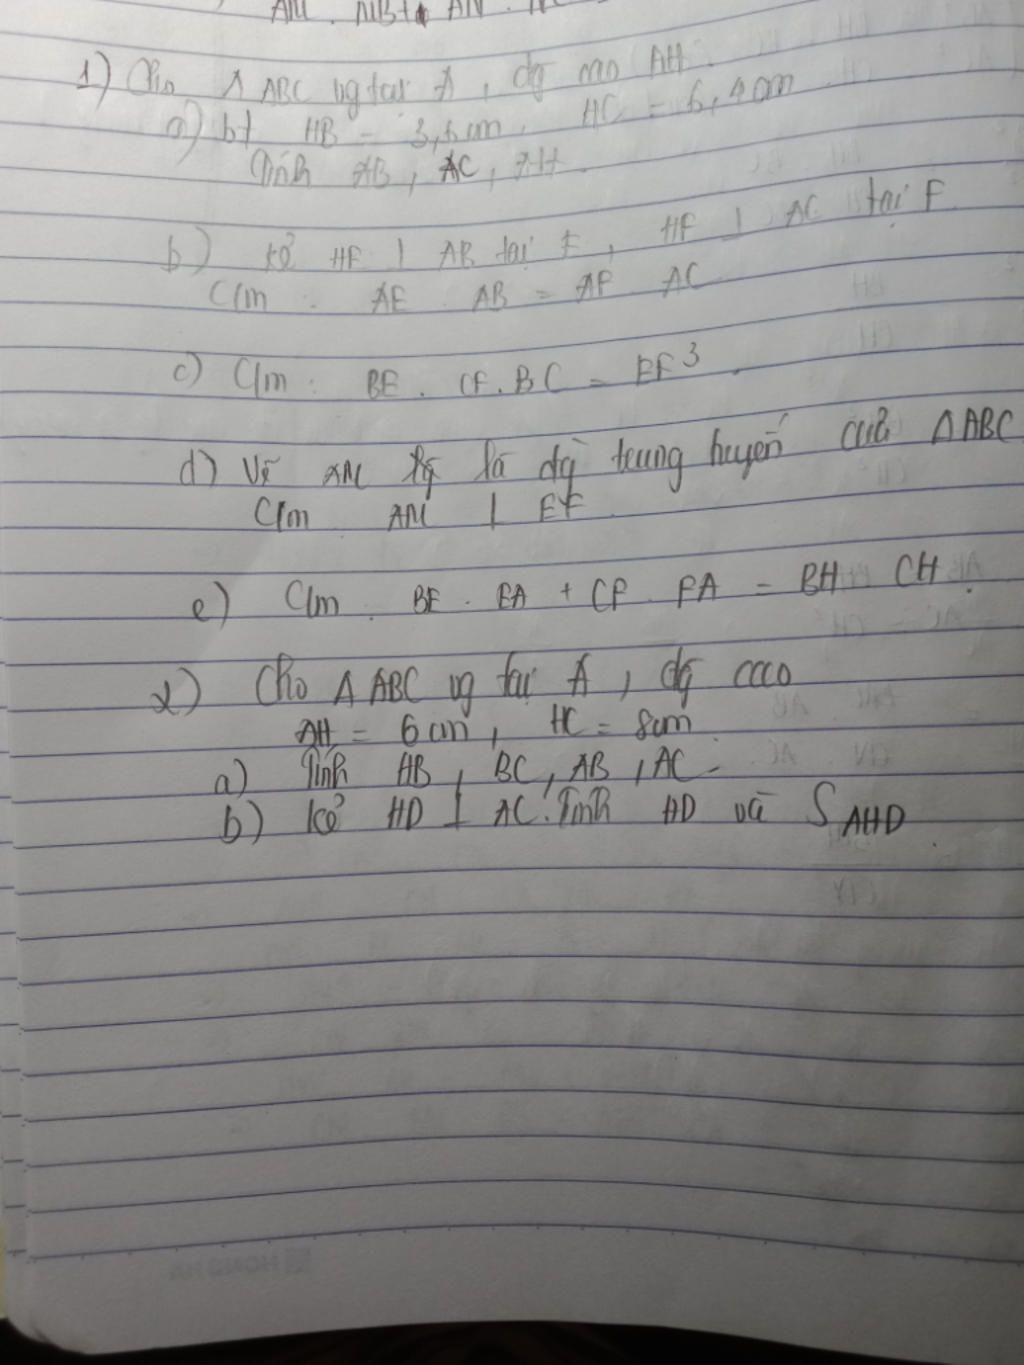 AM . MB + AN .
1) Cho Δ ABC vg tại A , đg cao AH .
a) bt HB = 3,6 cm , HC = 6,4 cm
Tính AB , AC , AH .
b) Kẻ HE ⊥ AB tại E , HF ⊥ AC tại F
C/m : AE . AB = AF . AC
c) C/m : BE . CF . BC = EF³ .
d) Vẽ AM là đg trung tuyến của Δ ABC
C/m AM ⊥ EF
e) C/m . BE . EA + CF . FA = BH . CH .
2) Cho Δ ABC vg tại A , đg cao
AH = 6 cm , HC = 8 cm
a) Tính HB , BC , AB , AC .
b) Kẻ HD ⊥ AC . Tính HD và S AHD .